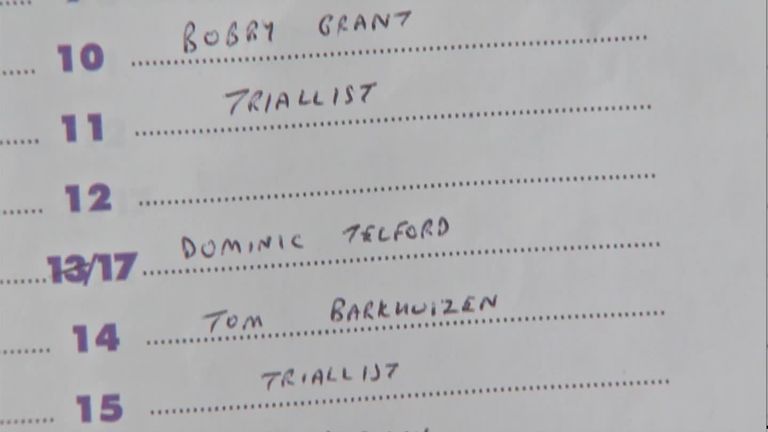 10 BOBBY GRANT
11 TRIALLIST
12
13/17 DOMINIC TELFORD
14 TOM BARKHUIZEN
15 TRIALLIST